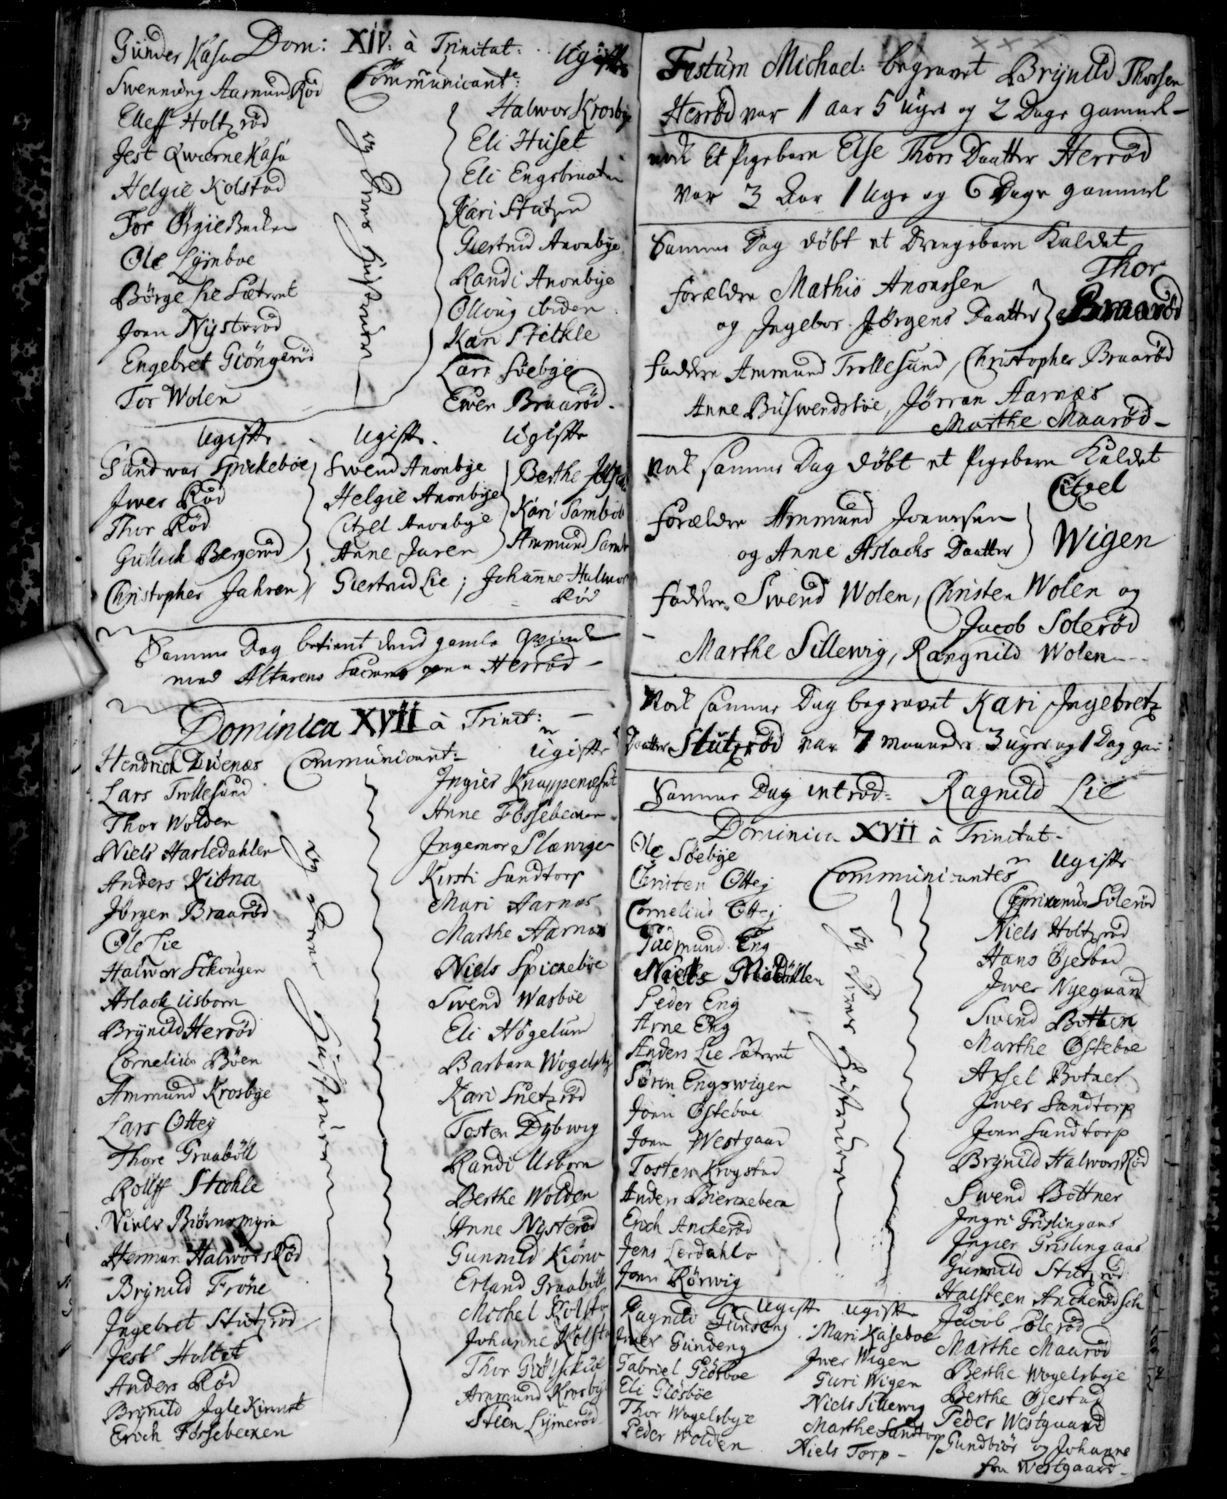 Dom: XIV: à Trinitat:
Communicant: Ugifte
Gunder Kasa
Swenning Aamund Rød
Elleff Holtzrød
Jest Qwerne Kasa
Helgie Kolstad
Tor Øigie
Ole Lijmboe
Børge Lie Sætret
Joen Nysterød
Engebret Giöngerød
Tor Wolen
og deres Hustruer
Halwor Krosbye
Eli Huset
Eli Engebraaten
Kari Stutzrød
Giertrud Anonbye
Randi Anonbye
Olloug ibidem
Kari Steckle
Lars Søebye
Ewen Braarød
Ugifte Ugifte Ugifte
Gundwor Spickebøe
Jwer Rød
Thor Rød
Gullich Bergerød
Christopher Jahren
Swend Anonbye
Helgie Anonbye
Citzel Anonbye
Anne Jaren
Giertrud Lie; Johanne Halwors Rød
Berthe
Kari Sambøe
Ammund
Samme Dag betient dend gamle Qwinde
med Altarens Sacram: Herrød
Dominica XVII à Trinit:
Communicant: Ugifte
Hendrich Duenæs
Lars Trollesund
Thor Wolden
Niels Harledahlen
Anders Kiøna
Jørgen Braarød
Ole Lie
Halwor Schougen
Aslach Usborn
Brÿnild Herrød
Cornelius Bøen
Ammund Krosbye
Lars Ottey
Thore Graabøll
Rolluff Steckle
Niels Biørnsmyra
Herman Halwors Rød
Brÿnild Frøne
Ingebret Stutzrød
Jest Holtet
Anders Rød
Brÿnild Igle Kiernet
Erich Fossebecken
og deres Hustruer
Ingier Knappenæset
Anne Fossebecken
Ingemor Slæwige
Kirsti Sandtorp
Mari Aarnæs
Marthe Aarnæs
Niels Spickebøe
Swend Wasbøe
Eli Høgelund
Barbara Wogelsbye
Kari Snetzrød
Tosten Dybwig
Randi Usborn
Berthe Wolden
Anne Nysterød
Gunnild Kiøna
Erland Graabøll
Michel Kolstad
Johanne Kolstad
Thor
Ammund Krosbye
Steen Lijmerød
Festum Michael: begravet Brÿnild Thorsen
Herrød var 1 aar 5 uger og 2 Dage gammel
nock Et Pigebarn Else Thors Daatter Herrød
var 3 Aar 1 Uge og 6 Dage gammel
Samme Dag døbt et Drengebarn Kaldet
Thor
Forældre Mathis Anonssen
og Ingebor Jørgens Daatter Braarød
Faddere Ammund Trollesund, Christopher Braarød
Anne Buswendsbøe, Jørran Aarnæs
Marthe Maarød
Nock samme Dag døbt et Pigebarn Kaldet
Citzel
Forældre Ammund Joenssen
og Anne Aslachs Daatter Wigen
Faddere Swend Wolen, Christen Wolen og
Jacob Solerød
Marthe Sillewig, Rangnild Wolen
Nock samme Dag begravet Kari Ingebretz
Daatter Stutzrød var 7 maaneder 3 uger og 1 Dag ga:
Samme Dag introd: Ragnild Lie
Dominica XVII à Trinitat:
Communicantes Ugifte
Ole Søebye
Christen Ottey
Cornelius Ottey
Gudmund Eng
Niels
Peder Eng
Arne Eng
Anders Lie Sætret
Søren Engswigen
Joen Østebøe
Joen Westgaar
Tosten Krogstad
Anders Bierckebeen
Erich Anckerød
Jens Lerdahl
Joen Rørwig
og deres Hustruer
Solerød
Niels Holtzrød
Hans Giesbøe
Jwer Nyegaard
Swend Botten
Marthe Østebøe
Axsel Botner
Jwer Sandtorp
Joen Sandtorp
Brÿnild Halwors Rød
Swend Bottner
Ingri Grislingaas
Ingier Grislingaas
Gunnild Stutzrød
Halsteen Anckerød
Jacob Solerød
Marthe Maarød
Berthe Wogelsbye
Berthe Giestad
Peder Westgaard
Gundbiør og Johanne
fra Westgaard
Ugift Ugifte
Ragnild Gundeng
Jwer Gundeng
Gabriel Giøsbøe
Eli Giøsbøe
Thor Wogelsbye
Peder Wolden
Mari Kasebøe
Jwer Wigen
Guri Wigen
Niels Sillewig
Marthe Sandtorp
Niels Torp